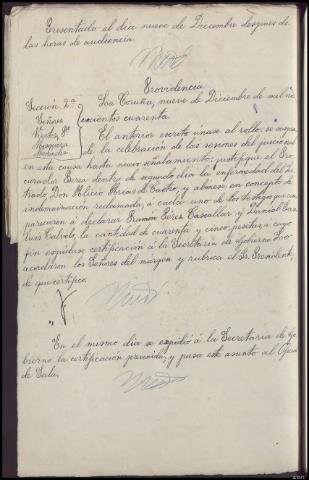 Presentado el diez nueve de Diciembre despues de
las horas de audiencia.
Providencia
Sección 2ª
Señores
La Coruña, nueve de Diciembre de mil no-
vecientos cuarenta.
El anterior escrito únase al rollo; se suspen-
de la celebración de las sesiones del juicio oral
en esta causa hasta nuevo señalamiento; justifique el Pro-
curador Perez dentro de segundo dia la enfermedad del le-
trado Don Alicio de Castro, y abonese en concepto de
indemnización reclamada, a cada uno de los testigos que com-
parecieron a declarar Ramon Perez Cascallar y
Luis Calvelo, la cantidad de cuarenta y cinco pesetas a cuyo
fin expidase certificación á la Secretaria de Gobierno. Lo
acordaron los Señores del margen y rubrica el Sr. Presidente,
de que certifico.
En el mismo dia se expidió á la Secretaria de Go-
bierno la certificación prevenida, y pasa este asunto al Oficial
de Sala.